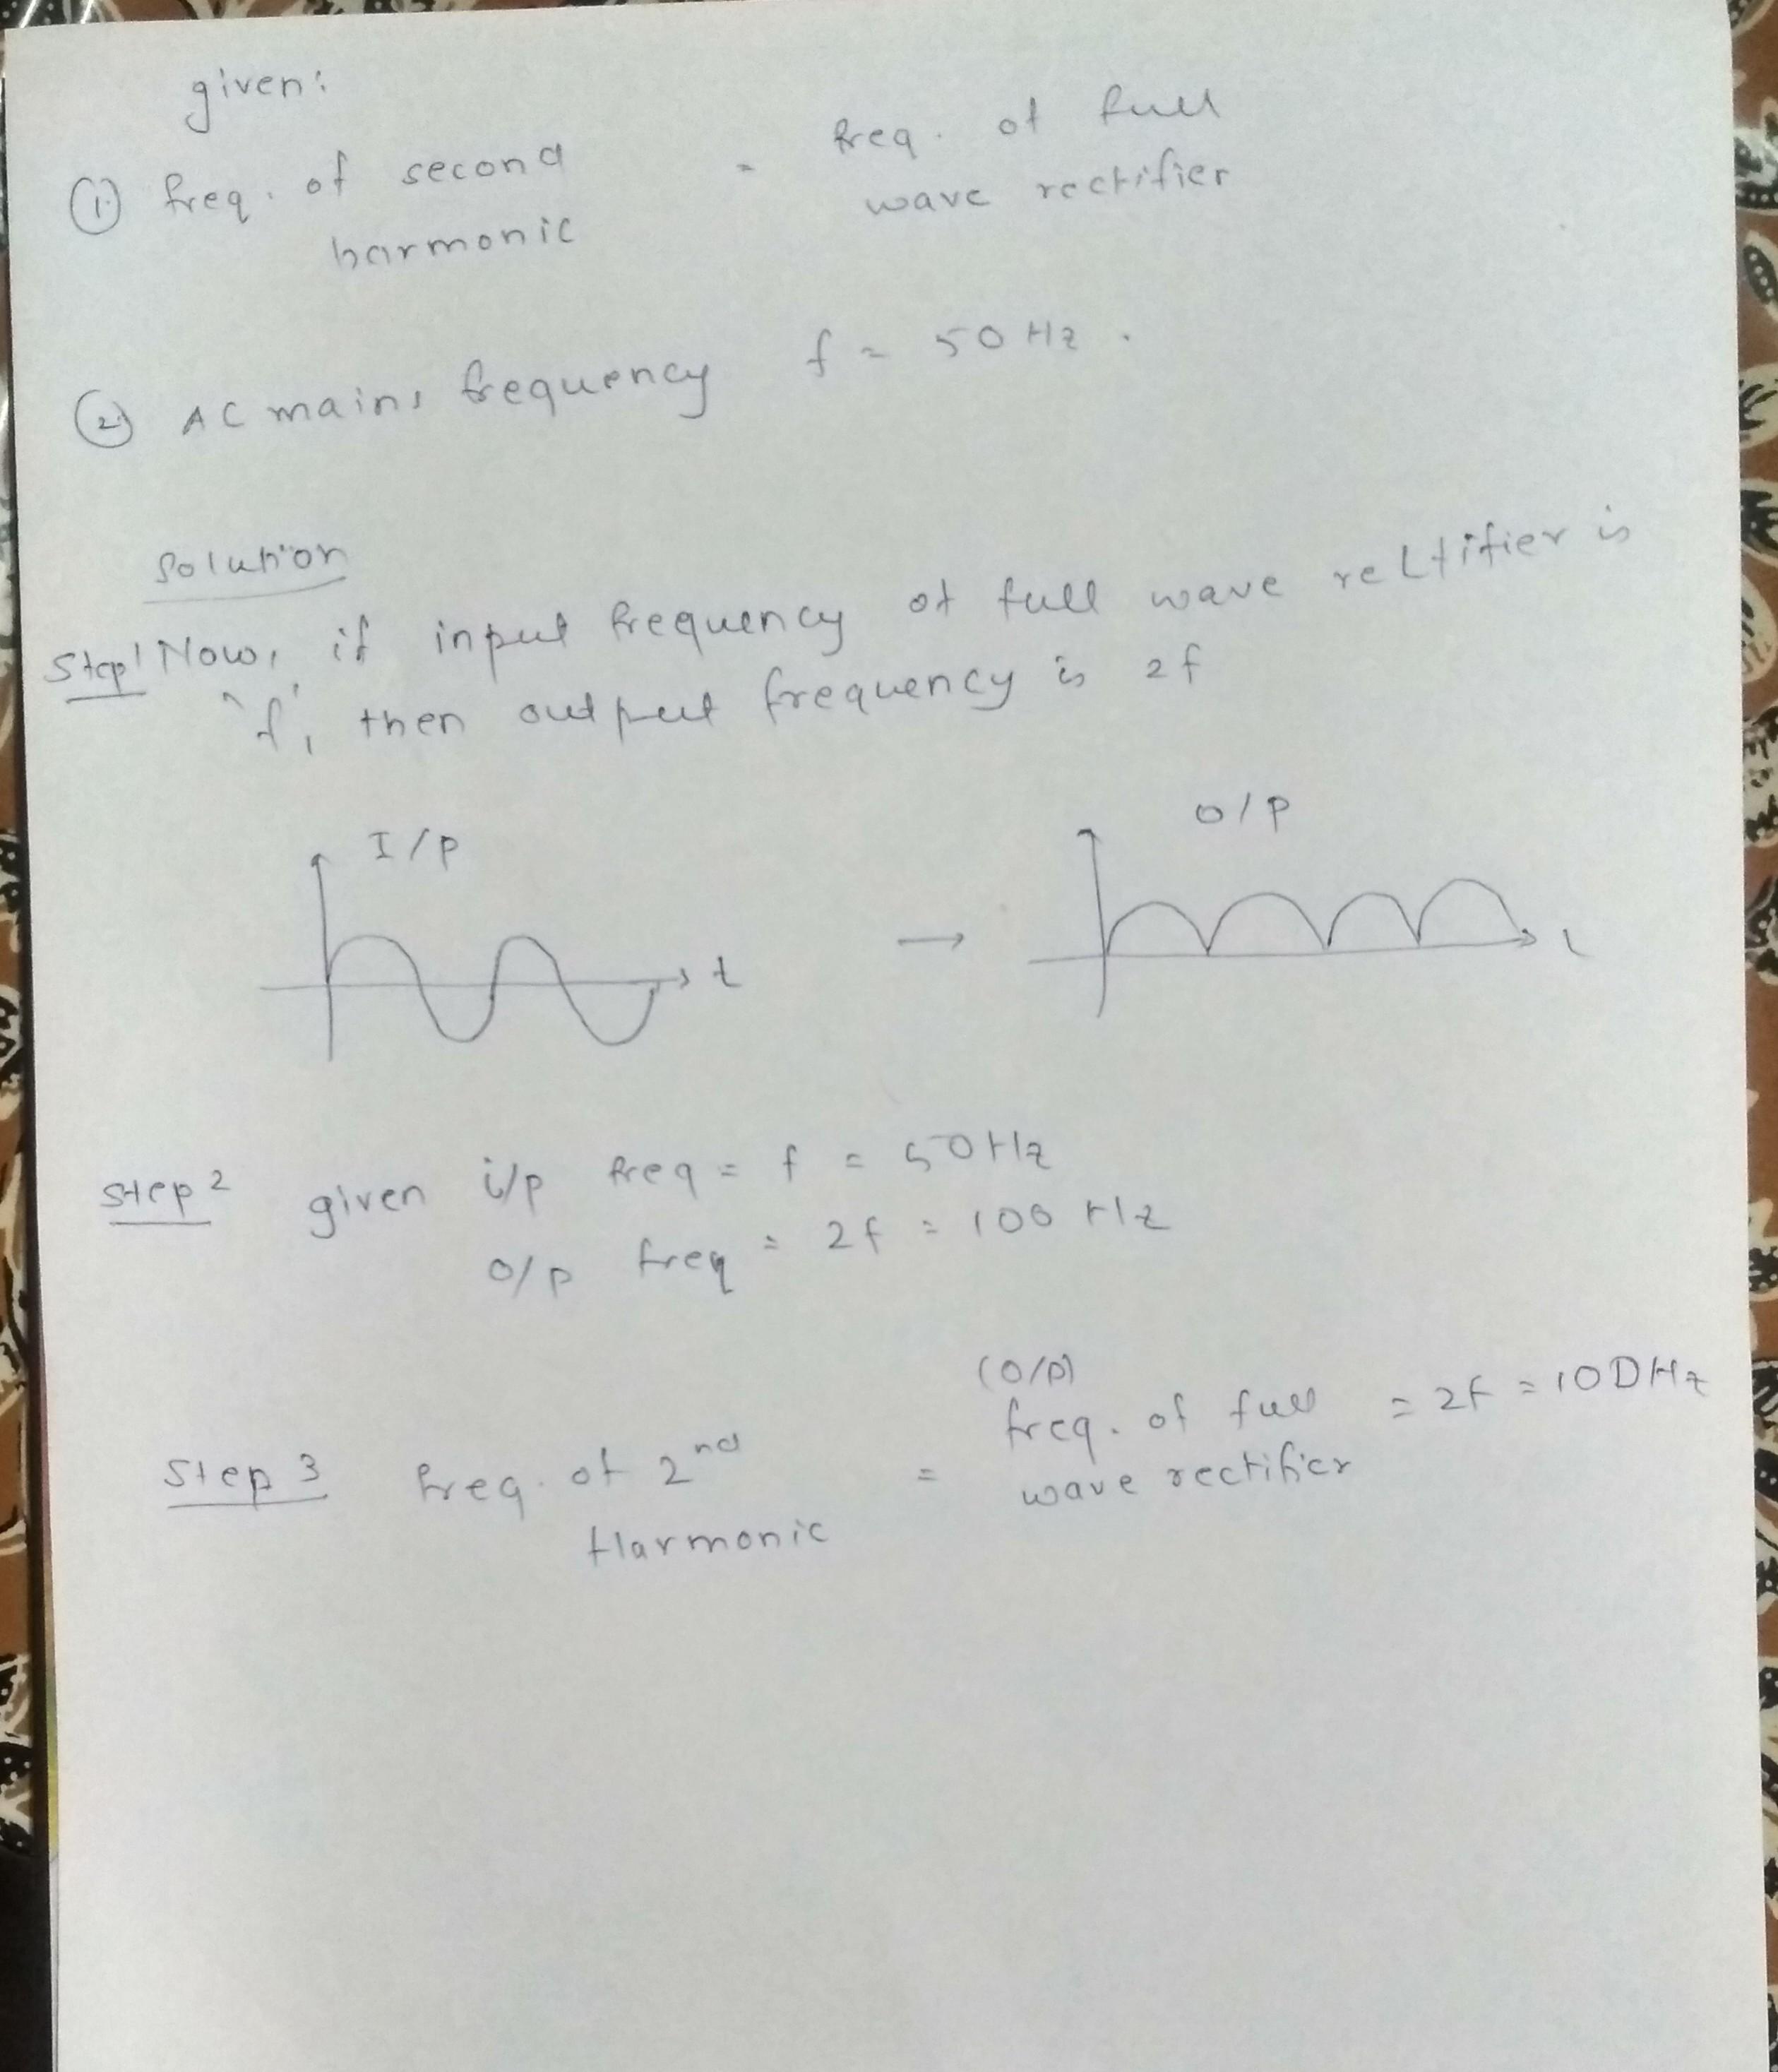 given:
① freq. of second = freq. of full
harmonic wave rectifier
② AC mains frequency f = 50 Hz.
Solution
Step 1 Now, if input frequency of full wave rectifier is
'f', then output frequency is 2f
I/P O/P
t → t
Step 2 given i/p freq = f = 50 Hz
o/p freq = 2f = 100 Hz
(O/P)
Step 3 freq. of 2nd = freq. of full = 2f = 100Hz
Harmonic wave rectifier